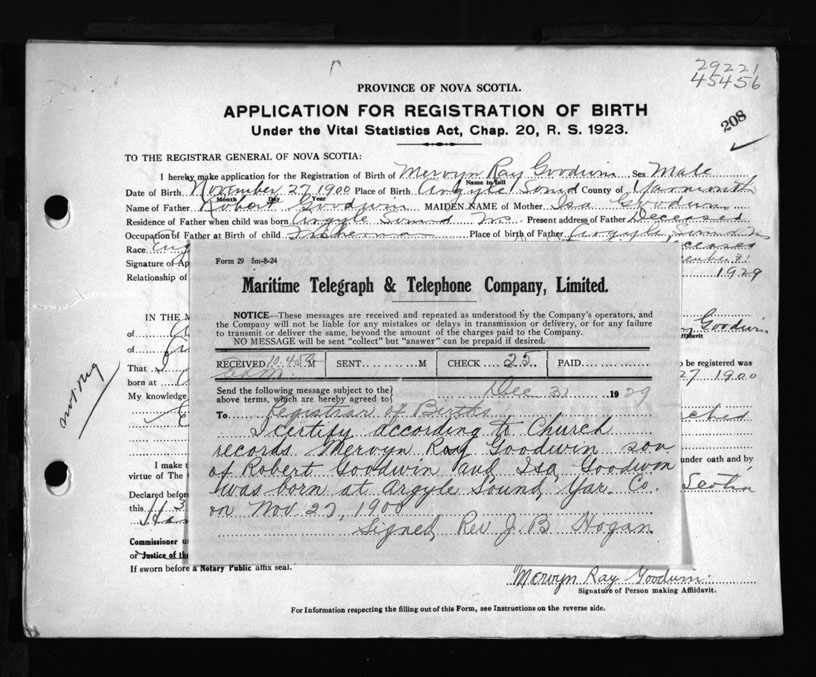 29221
45456
208
PROVINCE OF NOVA SCOTIA.
APPLICATION FOR REGISTRATION OF BIRTH
Under the Vital Statistics Act, Chap. 20, R. S. 1923.
TO THE REGISTRAR GENERAL OF NOVA SCOTIA:
I hereby make application for the Registration of Birth of Mervyn Ray Goodwin Sex Male
Name in full
Date of Birth November 27 1900 Place of Birth Argyle Sound County of Yarmouth
Month Day Year
Name of Father Robert Goodwin MAIDEN NAME of Mother Isa Goodwin
Residence of Father when child was born Argyle Sound N.S. Present address of Father Deceased
Occupation of Father at Birth of child Fisherman Place of birth of Father Argyle Sound N.S.
Race
Signature of Ap
Relationship of 1929
Form 29 5m-8-24
Maritime Telegraph & Telephone Company, Limited.
NOTICE—These messages are received and repeated as understood by the Company's operators, and
the Company will not be liable for any mistakes or delays in transmission or delivery, or for any failure
to transmit or deliver the same, beyond the amount of the charges paid to the Company.
NO MESSAGE will be sent "collect" but "answer" can be prepaid if desired.
RECEIVED 10.45 M SENT M CHECK 25 PAID
Send the following message subject to the
above terms, which are hereby agreed to
Dec 31 1929
To Registrar of Births
I certify according to Church
records Mervyn Ray Goodwin son
of Robert Goodwin and Isa Goodwin
was born at Argyle Sound, Yar. Co.
on Nov. 27, 1900
Signed, Rev J. B Hogan
IN THE M
of Goodwin
of ffidavit
That be registered was
born at 27 1900
My knowledge
not reg
I make t under oath and by
virtue of The Scotia
Declared before
this
Commissioner u
or Justice of the
If sworn before a Notary Public affix seal.
Mervyn Ray Goodwin
Signature of Person making Affidavit.
For Information respecting the filling out of this Form, see Instructions on the reverse side.